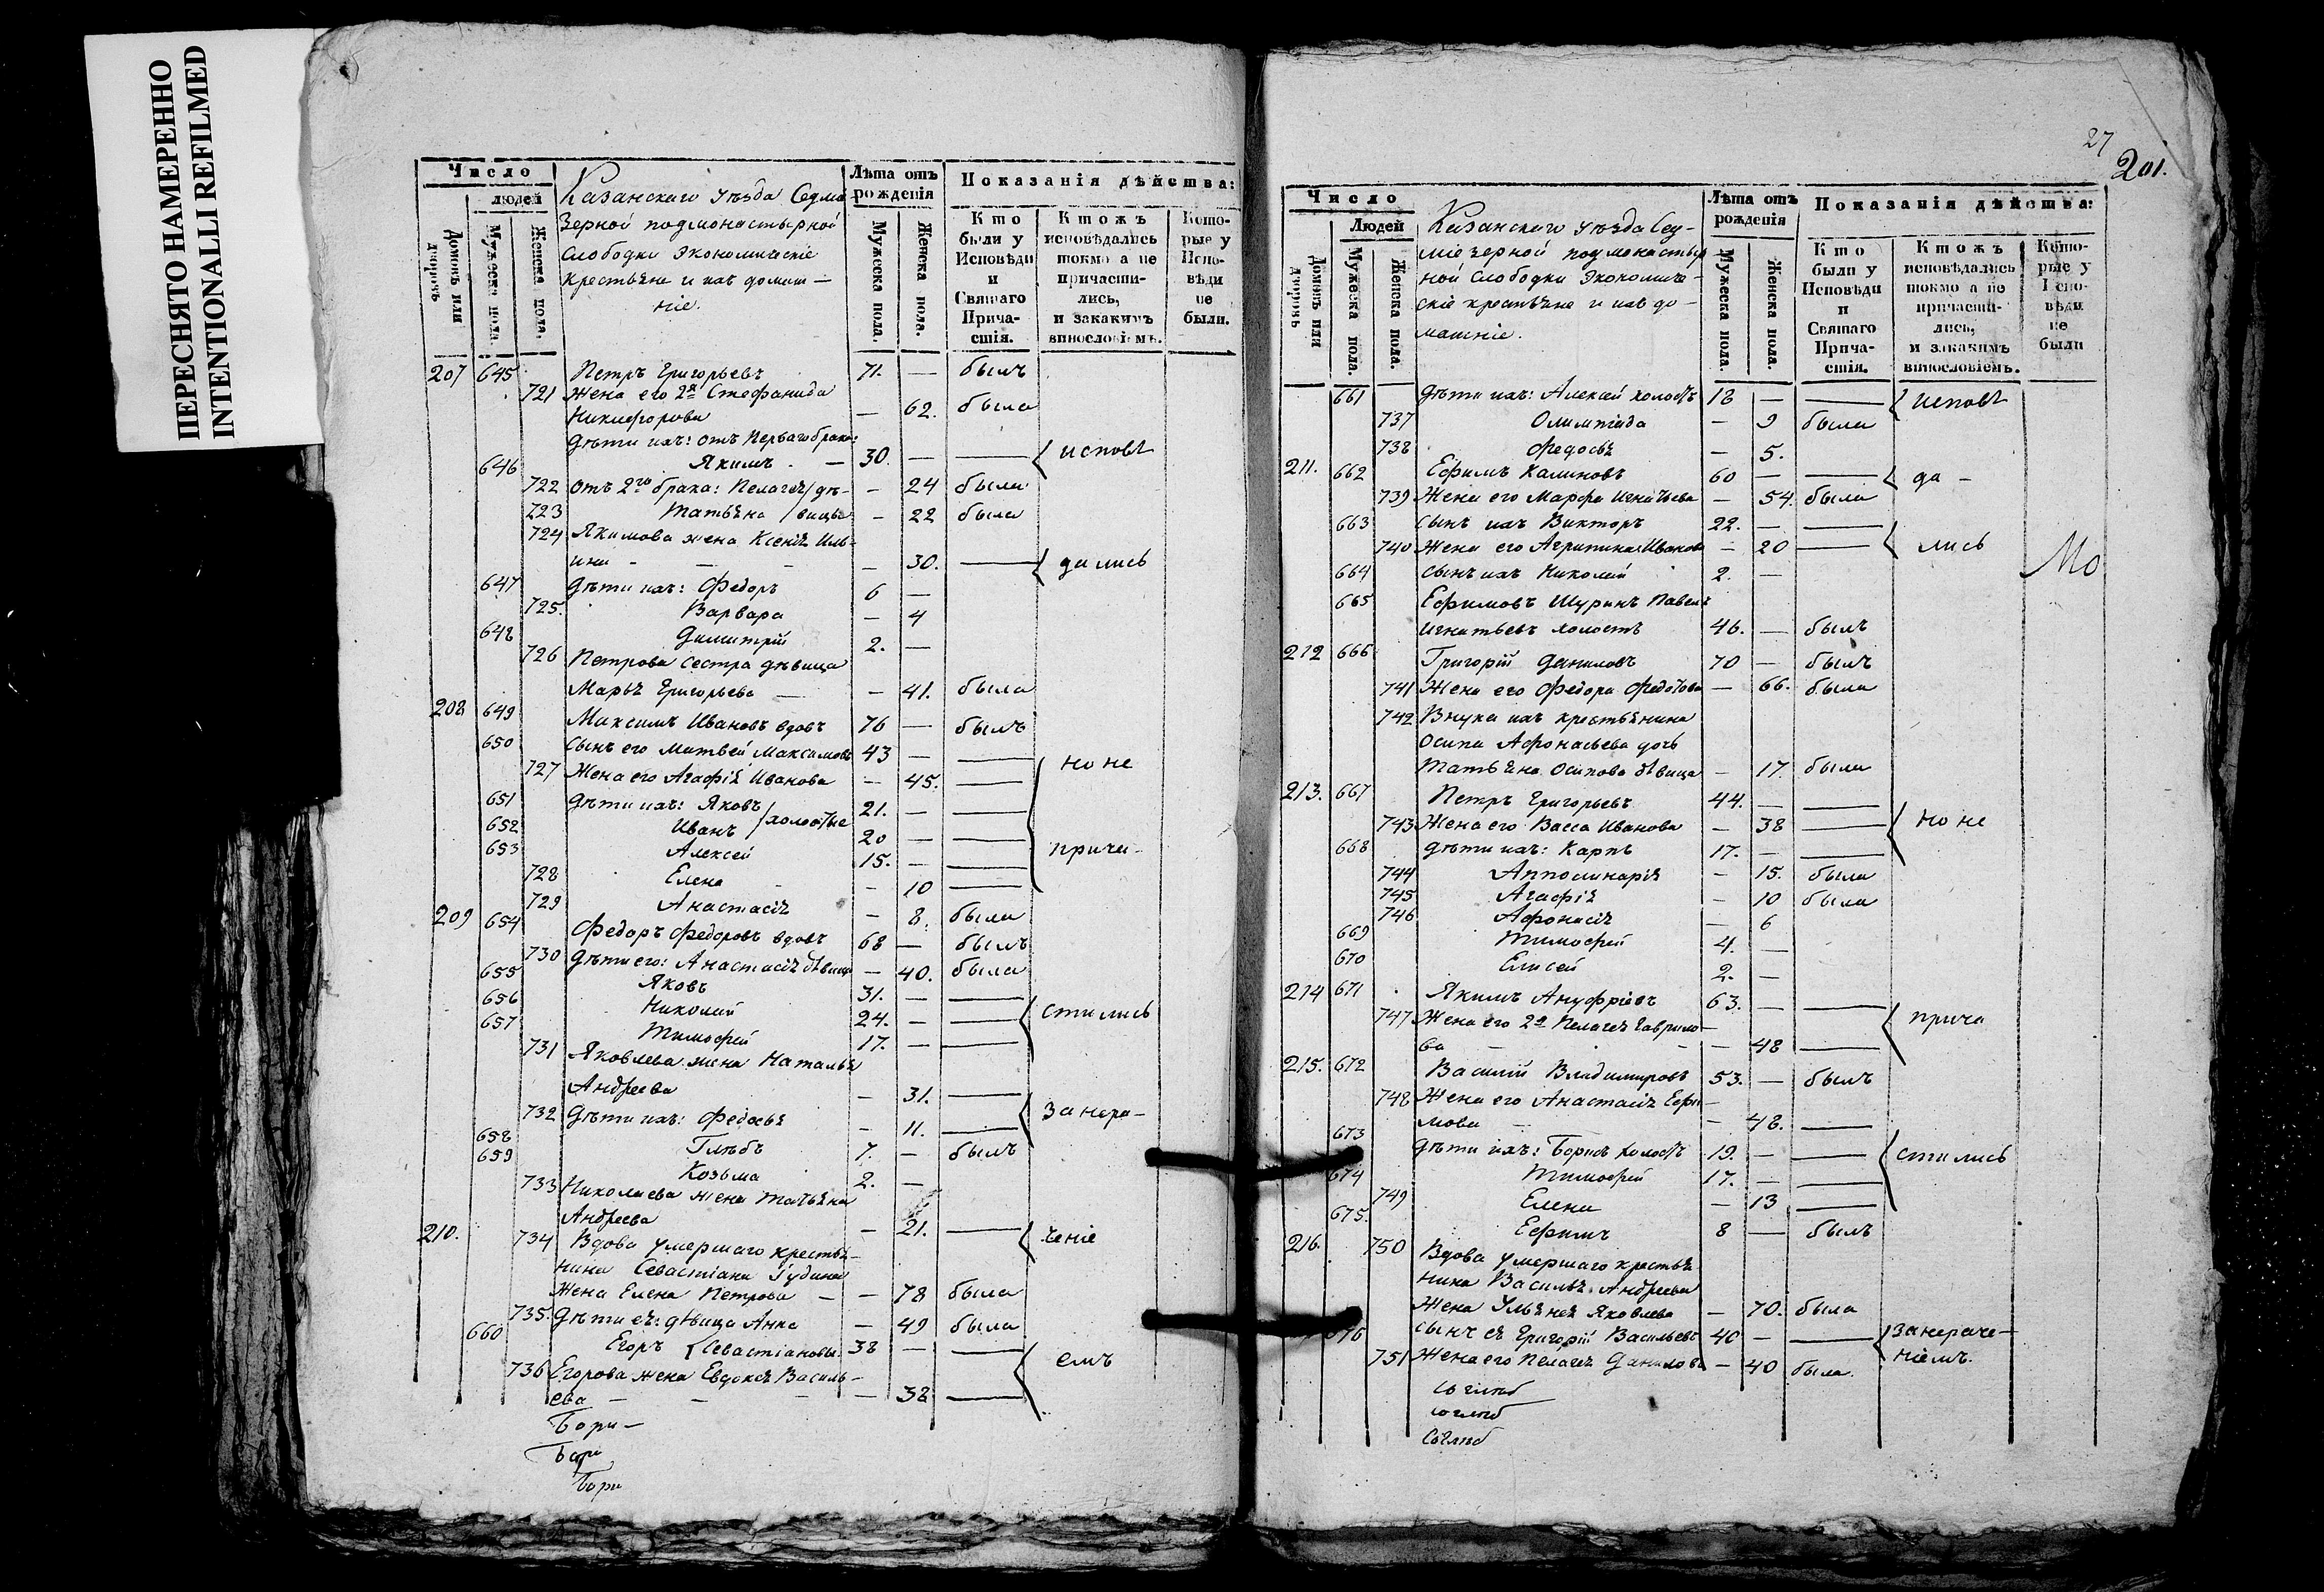 ПЕРЕСНЯТО НАМЕРЕННО
INTENTIONALLI REFILMED
Число
людей
Домовъ или дворовъ
Мужеска пола.
Женска пола.
Казанскаго уѣзда Седмі
Зерной подмонастырной
Слободки Экономическіе
крестьяне и ихъ домаш-
ніе.
Лѣта отъ рожденія
Мужеска пола.
Женска пола.
Показанія дѣйства:
Кто были у Исповѣди и Святаго Причастія.
Ктожъ исповѣдались токмо а не причастились, и закакимъ винословіемъ.
Которые у Исповѣди не были.
207 645 Петръ Григорьевъ 71. — былъ
721 Жена его 2я Стефанида
Никифорова — 62. была
Дѣти ихъ: отъ перваго брака:
646 Якимъ — 30. — — исповѣ
722 отъ 2го брака: Пелагея дѣ- — 24 была
723 Татьяна вицы — 22 была
724 Якимова жена Ксенія Иль-
ина — — — 30. — дались
647 Дѣти ихъ: Федоръ 6 —
725. Варвара — 4
648 Димитрій 2. —
726 Петрова сестра дѣвица
Марья Григорьева — — 41. была
208 649 Максимъ Ивановъ вдовъ 76 — былъ
650 Сынъ его Матвей Максимовъ 43 — —
727 Жена его Агафія Иванова — 45. — но не
651 Дѣти ихъ: Яковъ 21. — —
652 Иванъ холостые 20 — —
653 Алексей 15. — — прича-
728 Елена — 10 —
729 Анастасія — 8. была
209 654 Федоръ Федоровъ вдовъ 68 — былъ
730 Дѣти его: Анастасія дѣвица — 40. была
655 Яковъ 31. — —
656 Николай 24. — — стились
657 Тимофей 17. — —
731 Яковлева жена Наталья
Андреева — 31. —
732 Дѣти ихъ: Федосья — 11. — занера-
658 Глебъ 7. — былъ
659 Козьма 2. —
733 Николаева жена Татьяна
Андреева — 21. — ченіе
210. 734 Вдова умершаго крестья-
нина Севастіана Іудина
Жена Елена Петрова — — 78 была
735. Дѣти ея: дѣвица Анна — 49 была
660 Егоръ Севастіановы. 38 — — емъ
736 Егорова жена Евдокея Василь-
ева — — — — 38 —
Бори-
Бори
Бори
27
201.
Число
Людей
Домовъ или дворовъ
Мужеска пола.
Женска пола.
Казанскаго уѣзда Сед-
міезерной подмонастыр
ной Слободки Экономиче-
скіе крестьяне и ихъ до-
машніе.
Лѣта отъ рожденія
Мужеска пола.
Женска пола.
Показанія дѣйства:
Кто были у Исповѣди и Святаго Причастія.
Ктожъ исповѣдались токмо а не причастились, и закакимъ винословіемъ.
Которые у Исповѣди не были
661 Дѣти ихъ: Алексей холостъ 18 — — исповѣ
737 Олимпіада — 9 была
738 Федосья — 5.
211. 662 Ефимъ Калиновъ 60 — — да-
739 Жена его Марфа Игнатьева — 54. была
663 Сынъ ихъ Викторъ 22. — —
740 Жена его Агрипина Иванова — 20 — лись
Мо
664 Сынъ ихъ Николай 2. —
665 Ефимовъ Шуринъ Павелъ
Игнатьевъ холостъ 46. — былъ
212 666 Григорій Даниловъ 70 — былъ
741 Жена его Федора Федотова — 66. была
742 Внука ихъ крестьянина
Осипа Афонасьева дочь
Татьяна Осипова дѣвица — 17. была
213. 667 Петръ Григорьевъ 44. — —
743 Жена его Васса Иванова — 38 — но не
668 Дѣти ихъ: Карпъ 17. — —
744 Апполинарія — 15. была
745 Агафія — 10 была
746 Афонасія — 6
669 Тимофей 4. —
670 Елисей 2. —
214 671 Якимъ Ануфріевъ 63. — —
747 Жена его 2я Пелагея Гаврило- прича
ва — — — 48 —
215. 672 Василій Владимировъ 53. — былъ
748 Жена его Анастасія Ефи-
мова — — 48. —
673 Дѣти ихъ: Борисъ холостъ 19. — — стились
674 Тимофей 17. — —
749 Елена — 13 —
675. Ефимъ 8 — былъ
216. 750 Вдова умершаго крестья
нина Василья Андреева
Жена Ульянея Яковлева — 70. была
676 Сынъ ея Григорій Васильевъ 40 — — занераче-
751 Жена его Пелагея Данилова — 40 была. ніемъ.